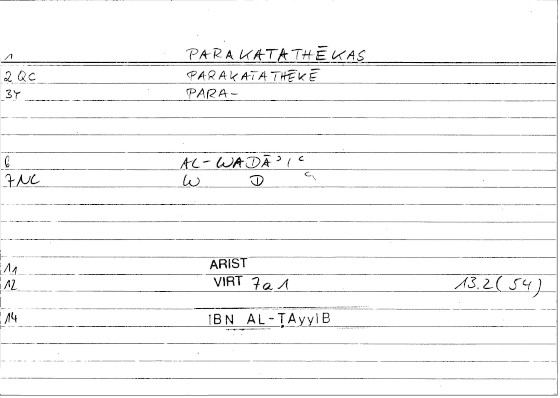 1 PARAKATATHĒKAS
2 QC PARAKATATHĒKĒ
3Y PARA-
6 AL-WADĀʾIʿ
7NC W D ʿ
11 ARIST
12 VIRT 7a1 13.2(54)
14 IBN AL-ṬAyyIB